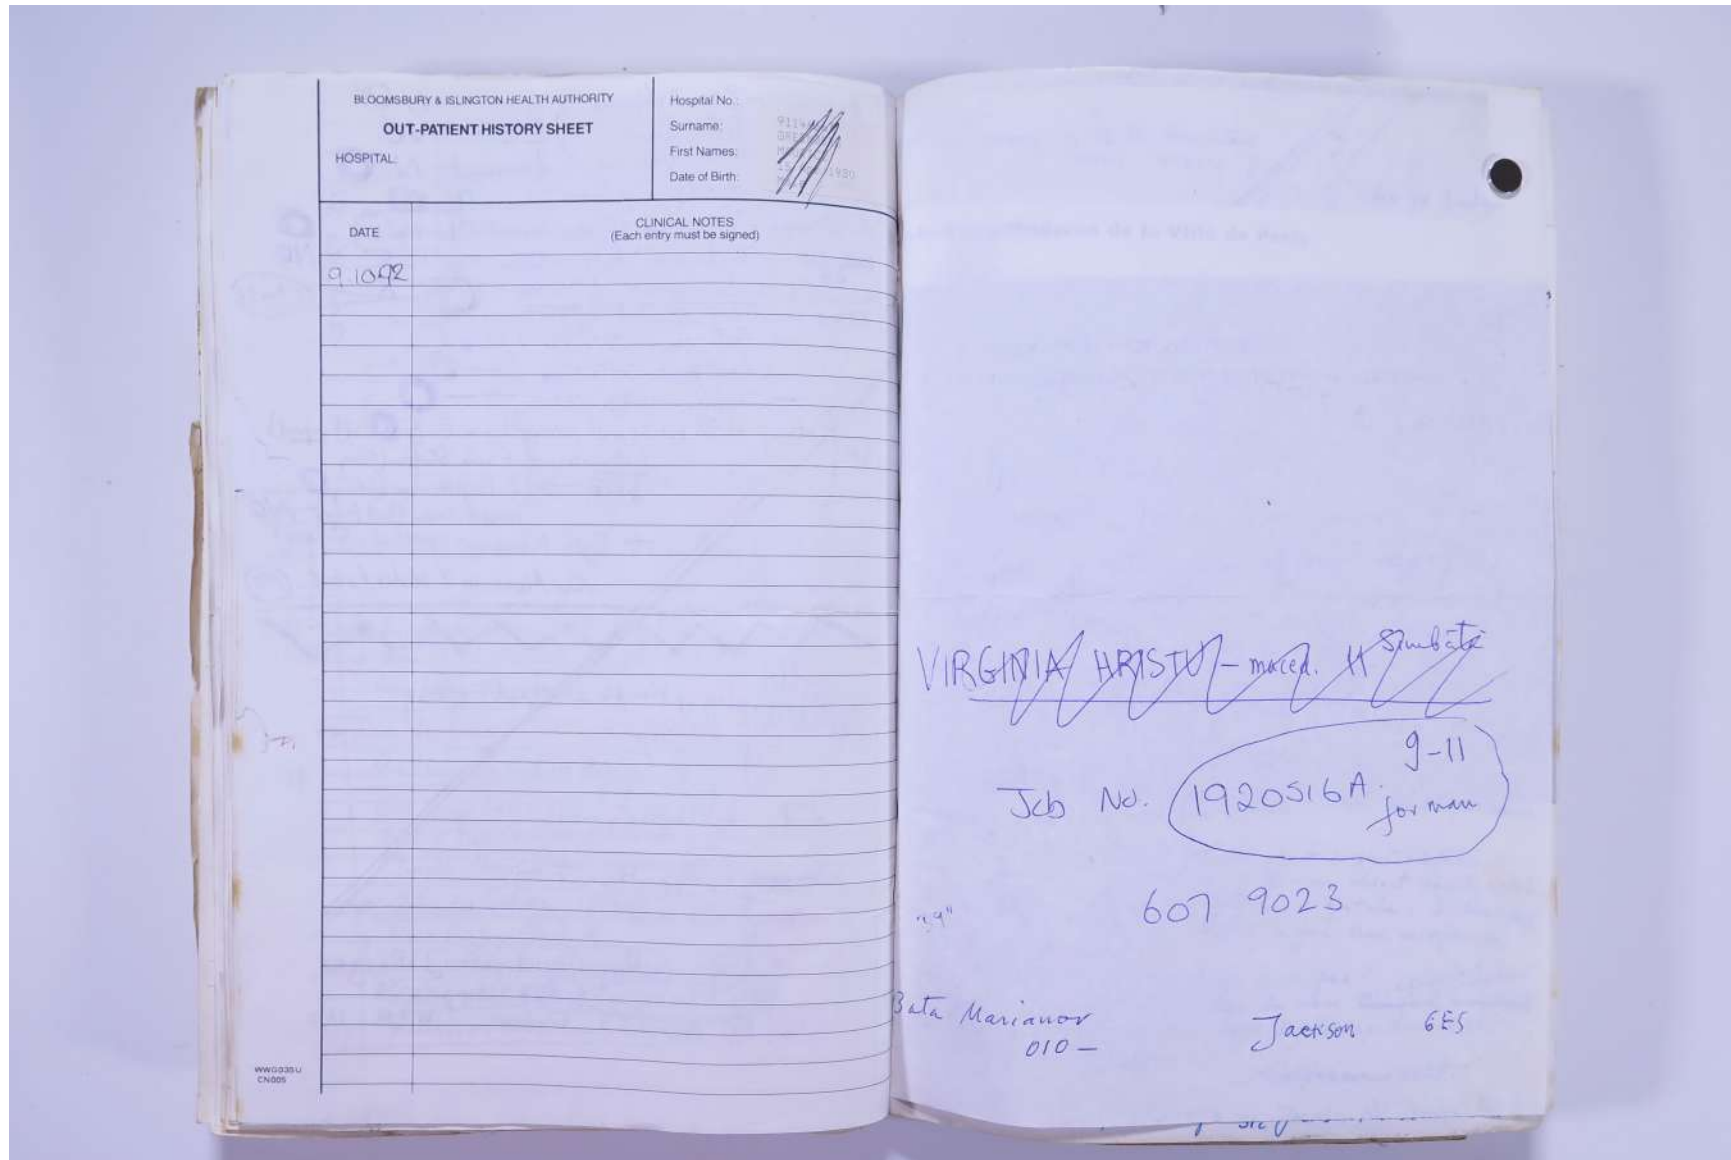 BLOOMSBURY & ISLINGTON HEALTH AUTHORITY
OUT-PATIENT HISTORY SHEET
HOSPITAL:
Hospital No.:
Surname:
First Names:
Date of Birth:
DATE
CLINICAL NOTES
(Each entry must be signed)
9.10.92
WWG035U
CN005
VIRGINIA HRISTU - maced. 11 Sâmbătă
9-11
Job No. 1920516A. for man
607 9023
"39"
Bata Marianov
010 -
Jackson 6E5